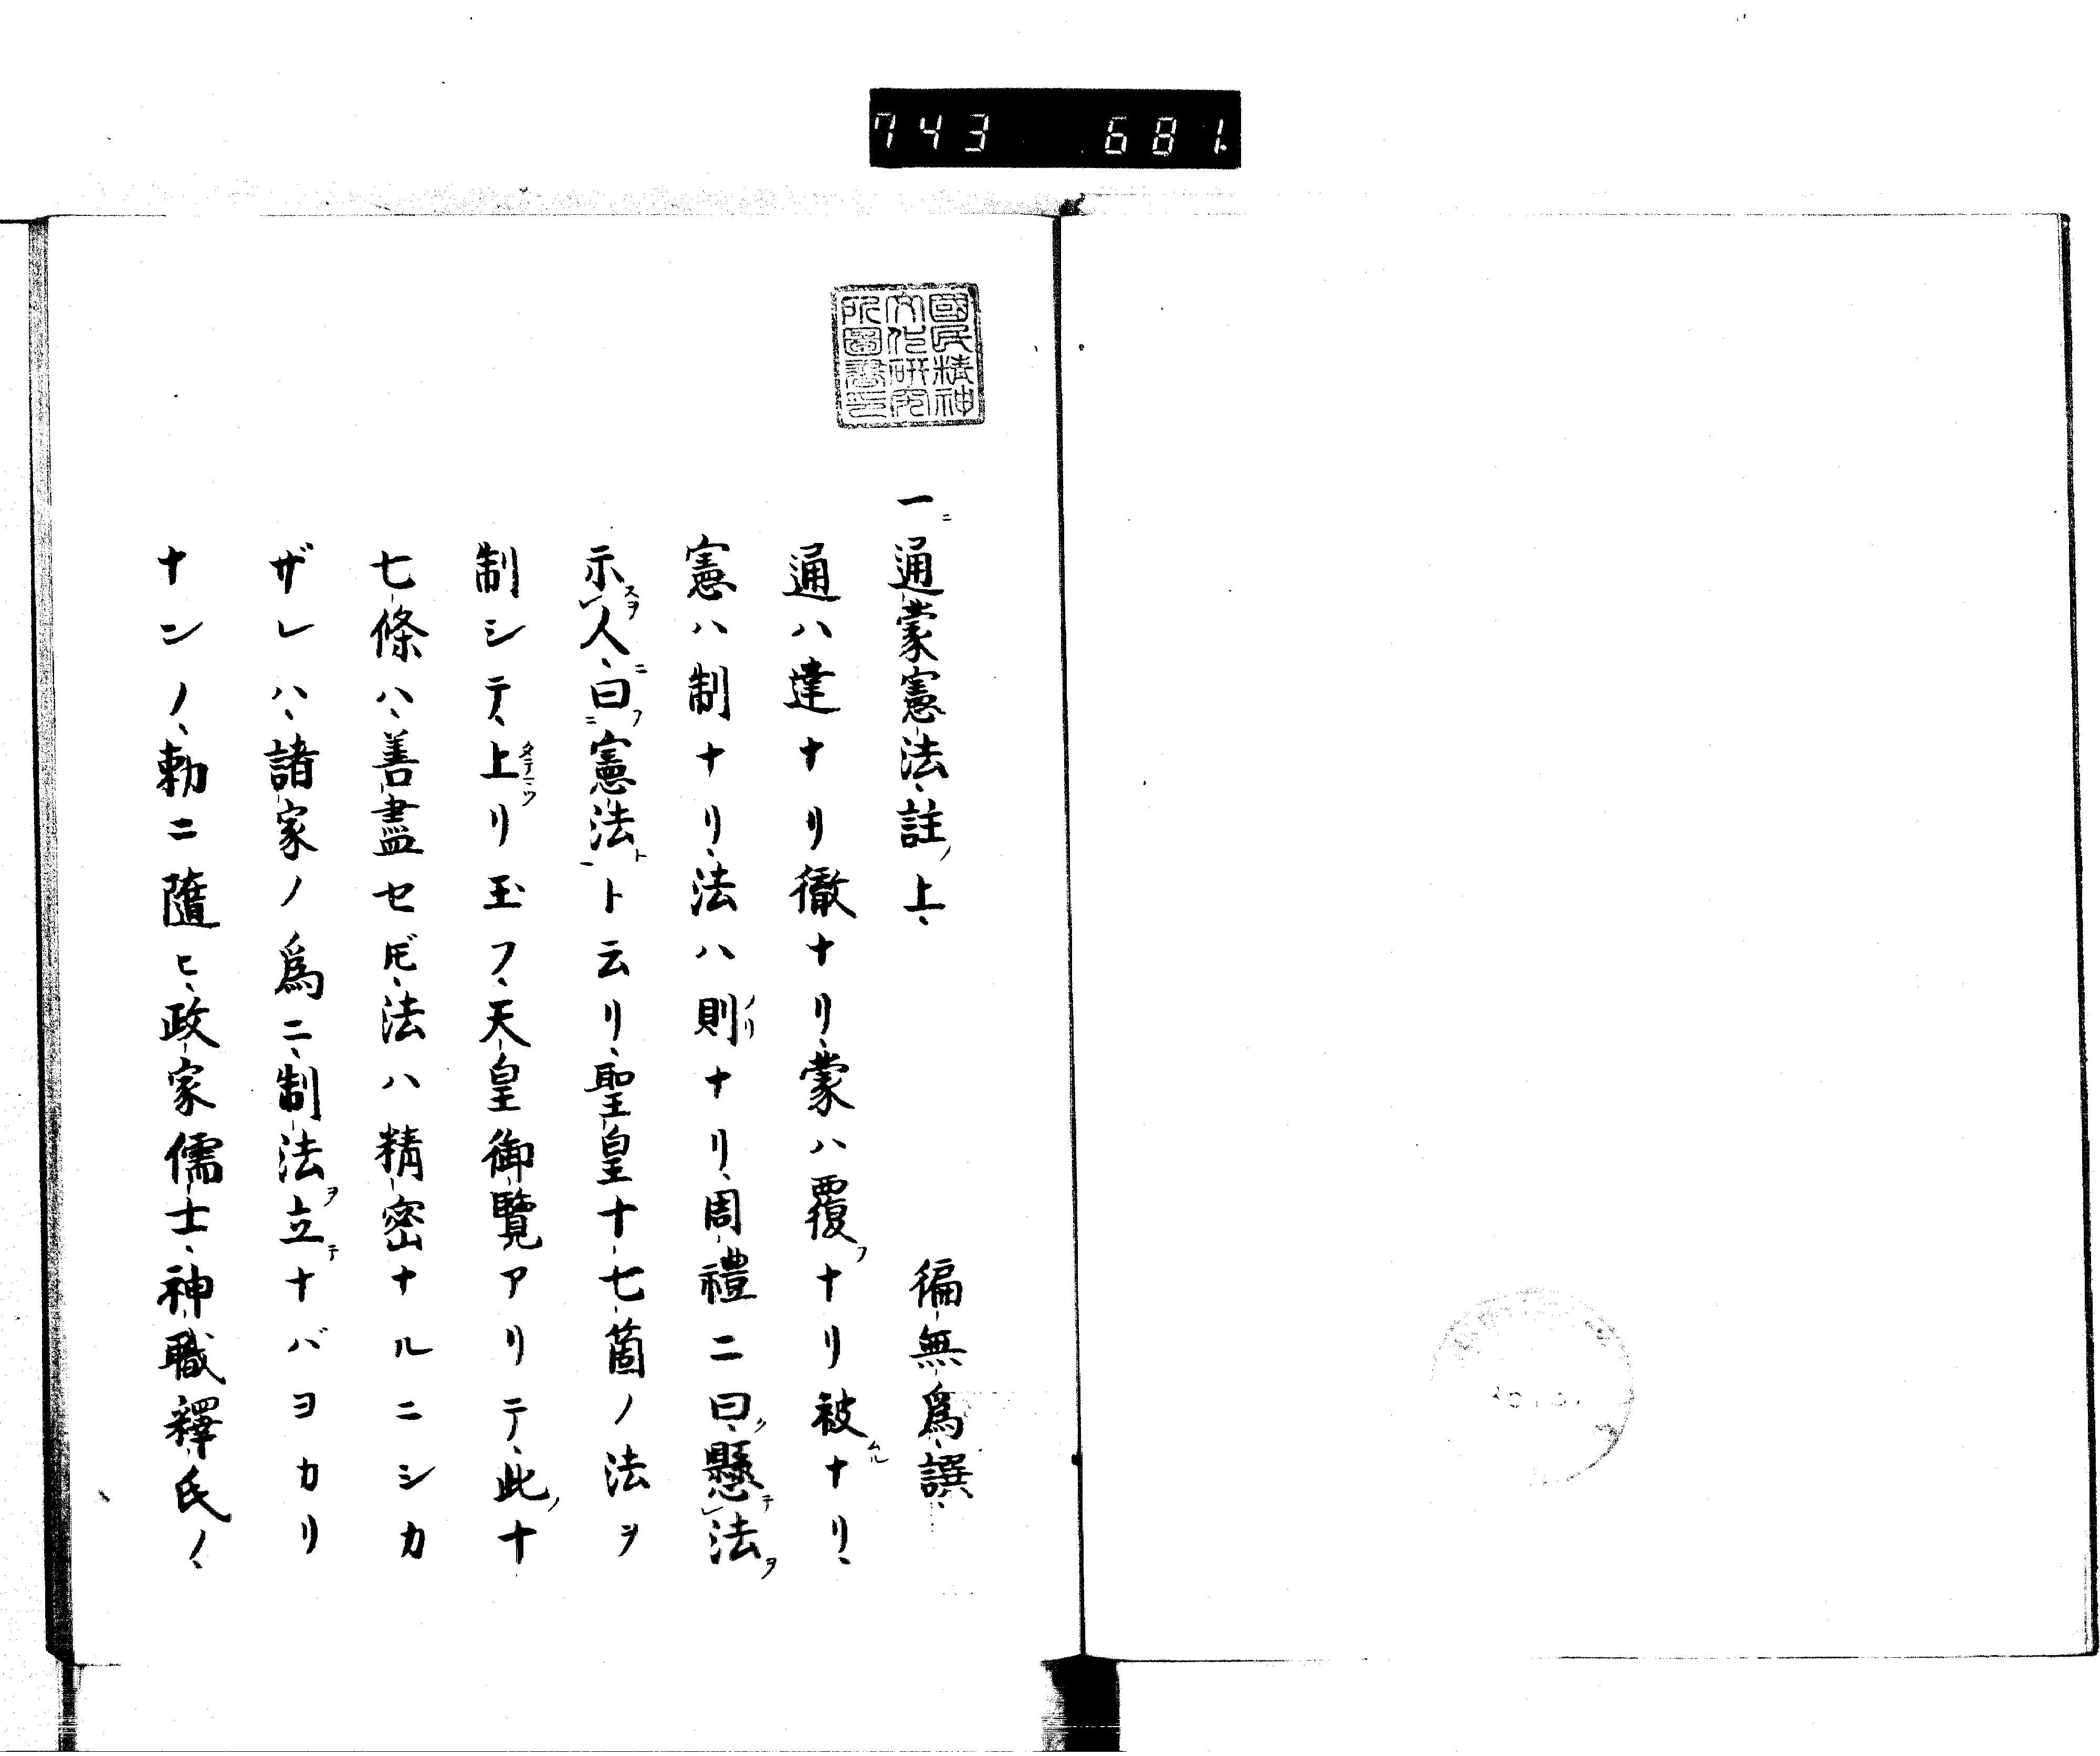 743 681
國民精神
文化研究
所圖書印
一ニ通蒙憲法註ノ上、 徧無爲譔、
通ハ達ナリ徹ナリ、蒙ハ覆フナリ被ムルナリ、
憲ハ制ナリ、法ハ則ノリナリ、周禮ニ曰ク、懸テ法ヲ
示スヲ人ニ、曰フ二憲法ト一ト云リ、聖皇十七箇ノ法ヲ
制シテ、上タテマツリ玉フ、天皇御覽アリテ、此ノ十
七條ハ、善盡セ𪜈、法ハ精密ナルニシカ
ザレハ、諸家ノ爲ニ、制法ヲ立テナバヨカリ
ナンノ、勅ニ隨ヒ、政家儒士、神職釋氏ノ、